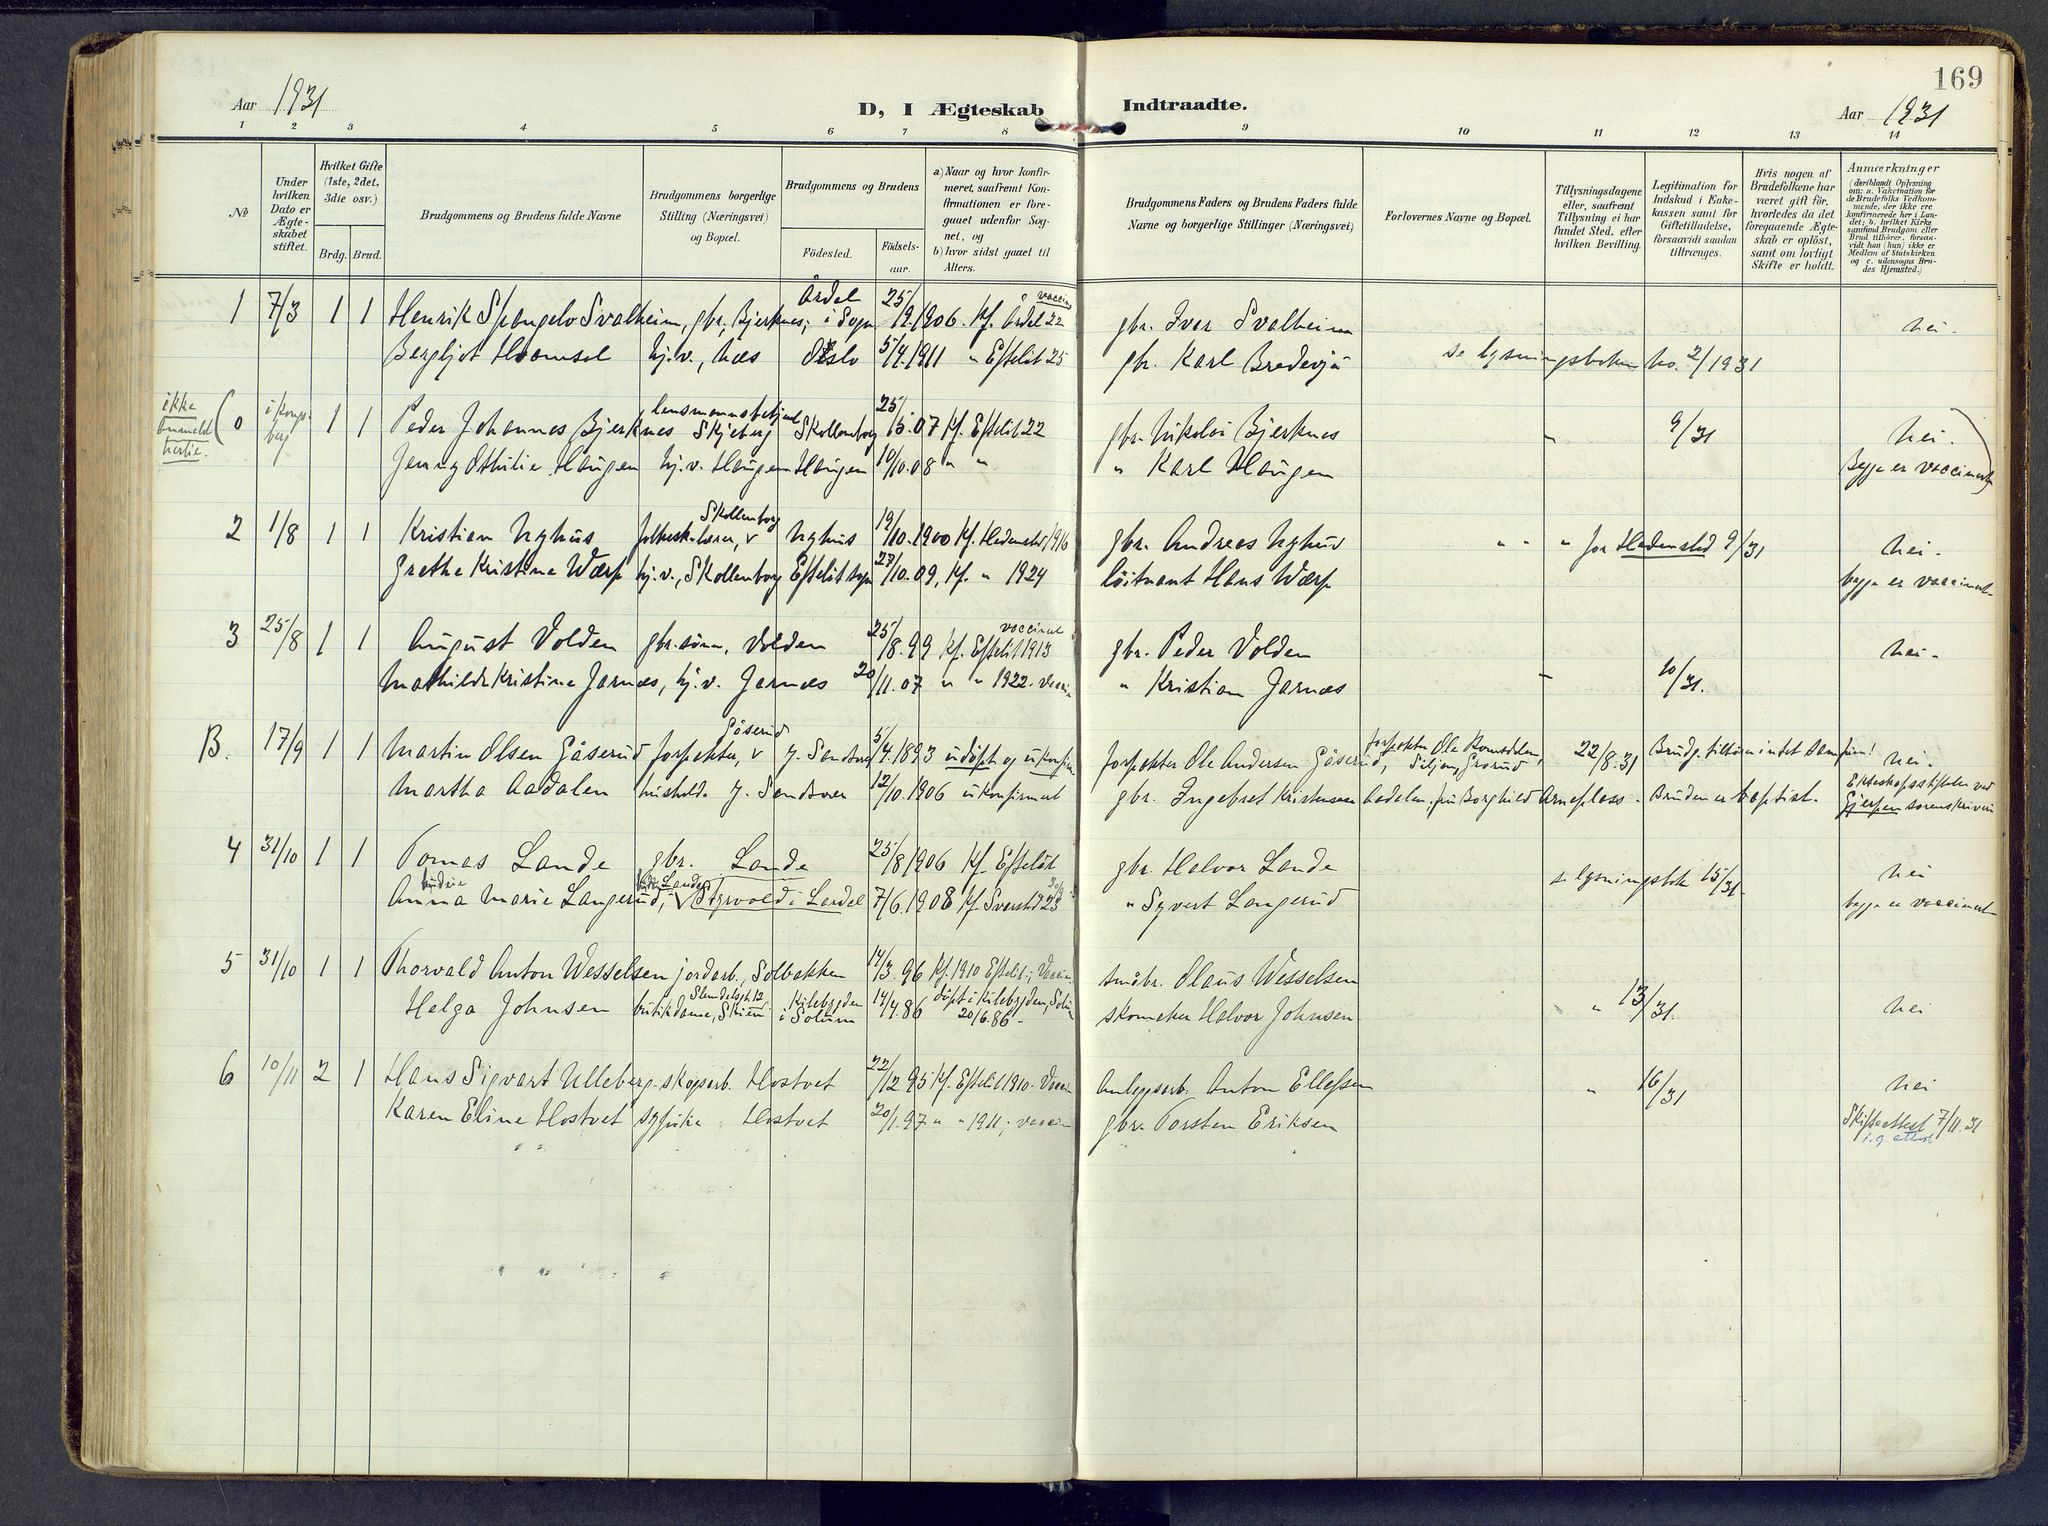 169
Aar 1931
D, I Ægteskab Indtraadte.
Aar 1931
1 2 3 4 5 6 7 8 9 10 11 12 13 14
No
Under hvilken Dato er Ægteskabet stiftet.
Hvilket Gifte (1ste, 2det, 3die osv.)
Brdg. Brud.
Brudgommens og Brudens fulde Navne
Brudgommens borgerlige Stilling (Næringsvei) og Bopæl.
Brudgommens og Brudens
Födested. Födselsaar.
a) Naar og hvor konfirmeret, saafremt Konfirmationen er foregaaet udenfor Sognet, og
b) hvor sidst gaaet til Alters.
Brudgommens Faders og Brudens Faders fulde Navne og borgerlige Stillinger (Næringsvei)
Forlovernes Navne og Bopæl.
Tillysningsdagene eller, saafremt Tillysning ei har fundet Sted, efter hvilken Bevilling.
Legitimation for Indskud i Enkekassen samt for Giftetilladelse, forsaavidt saadan tiltrænges.
Hvis nogen af Brudefolkene har været gift før, hvorledes da det foregaaende Ægteskab er oplöst, samt om lovligt Skifte er holdt.
Anmærkninger
(deriblandt Oplysning om: a. Vakcination for Brudefolks Vedkommende, der ikke ere konfirmerede her i Landet; b. hvilket Kirkesamfund Brudgom eller Brud tilhörer, forsaavidt han (hun) ikke er Medlem af Statskirken og c. udensogns Brudes Hjemsted.)
1 7/3 1 1 Henrik Spangelo Svalheim, gbr. Bjerknes; Årdal i Sogn 25/9.1906. Kf. Årdal 22 vaccine gbr. Ivar Svalheim nei.
Bergljot Hvamsel hj.v., Næs Oslo 5/4.1911 " Efteløt 25 gbr. Karl Bredesjø se lysningsboken no. 2/1931
ikke anmeldt hertil. (0 i Kongsberg 1 1 Peder Johannes Bjerknes lensmannsbetjent Skjeberg Skollenborg 25/5.07 Kf. Efteløt 22 gbr. Nikolai Bjerknes " 9/31 nei.
Jenny Othilie Haugen hj.v. Haugen Haugen 10/10.08 " " " Karl Haugen Begge er vaccinert)
2 1/8 1 1 Kristian Nyhus folkesk.lærer, Skollenborg Nyhus 19/10.1900 Kf. Hedenstad 1916 gbr. Andreas Nyhus " " " for Hedenstad 9/31 nei.
Grethe Kristine Wærp hj.v., Skollenborg Efteløt sogn 27/10.09, Kf. " 1924 løitnant Hans Wærp begge er vaccinert
3 25/8 1 1 August Volden gbr.sønn, Volden 25/8.99 Kf. Efteløt 1913 vaccinert gbr. Peder Volden nei.
Mathilde Kristine Jarnæs, hj.v. Jarnæs 20/11.07 " " 1922. " Kristian Jarnæs " 10/31.
B. 17/9 1 1 Martin Olsen Gåserud forpakter, Gåserud y. Sandsvær 5/4.1893 udöpt og ukonfirm forpakter Ole Andersen Gåserud, forpakter Ole Romsdalen, Siljan, Grorud 22/8.31 nei.
Martha Aadalen husholde y. Sandsvær 12/10.1906 ukonfirmert gbr. Ingebret Kristensen Aadalen, fru Borghild Arneplass. Bruden er baptist. Ekteskapsstiftelsen ved Gjerpen sorenskriveri
4 31/10 1 1 Tomas Lande gbr. Lande 25/8 1906 Kf. Efteløt gbr. Halvor Lande se lysningsbok 15/31. nei
Anna Marie Langerud, Styrvold i Lardal 7/6.1908 Kf. Svarstad 23 " Syvert Langerud begge er vaccinert
5 31/10 1 1 Thorvald Anton Wesselsen jordarb. Solbakken 14/3.96 Kf. 1910 Efteløt; Vaccin. småbr. Olaus Wesselsen
Helga Johnsen butikdame, Skien Kilebygden i Solum 14/4.86 döpt i Kilebygden, Solum 20/6.86 skomaker Halvor Johnsen " 13/31. nei
6 10/11 2 1 Hans Sigvart Ulleberg skogsarb. Hostvet 22/12 95 Kf. Efteløt 1910. Vaccin anleggsarb. Anton Ellefsen " 16/31 nei
Karen Eline Hostvet syerske Hostvet 20/1.97 " " 1911; vaccin gbr. Torsten Eriksen Skifteattest 7/11.31